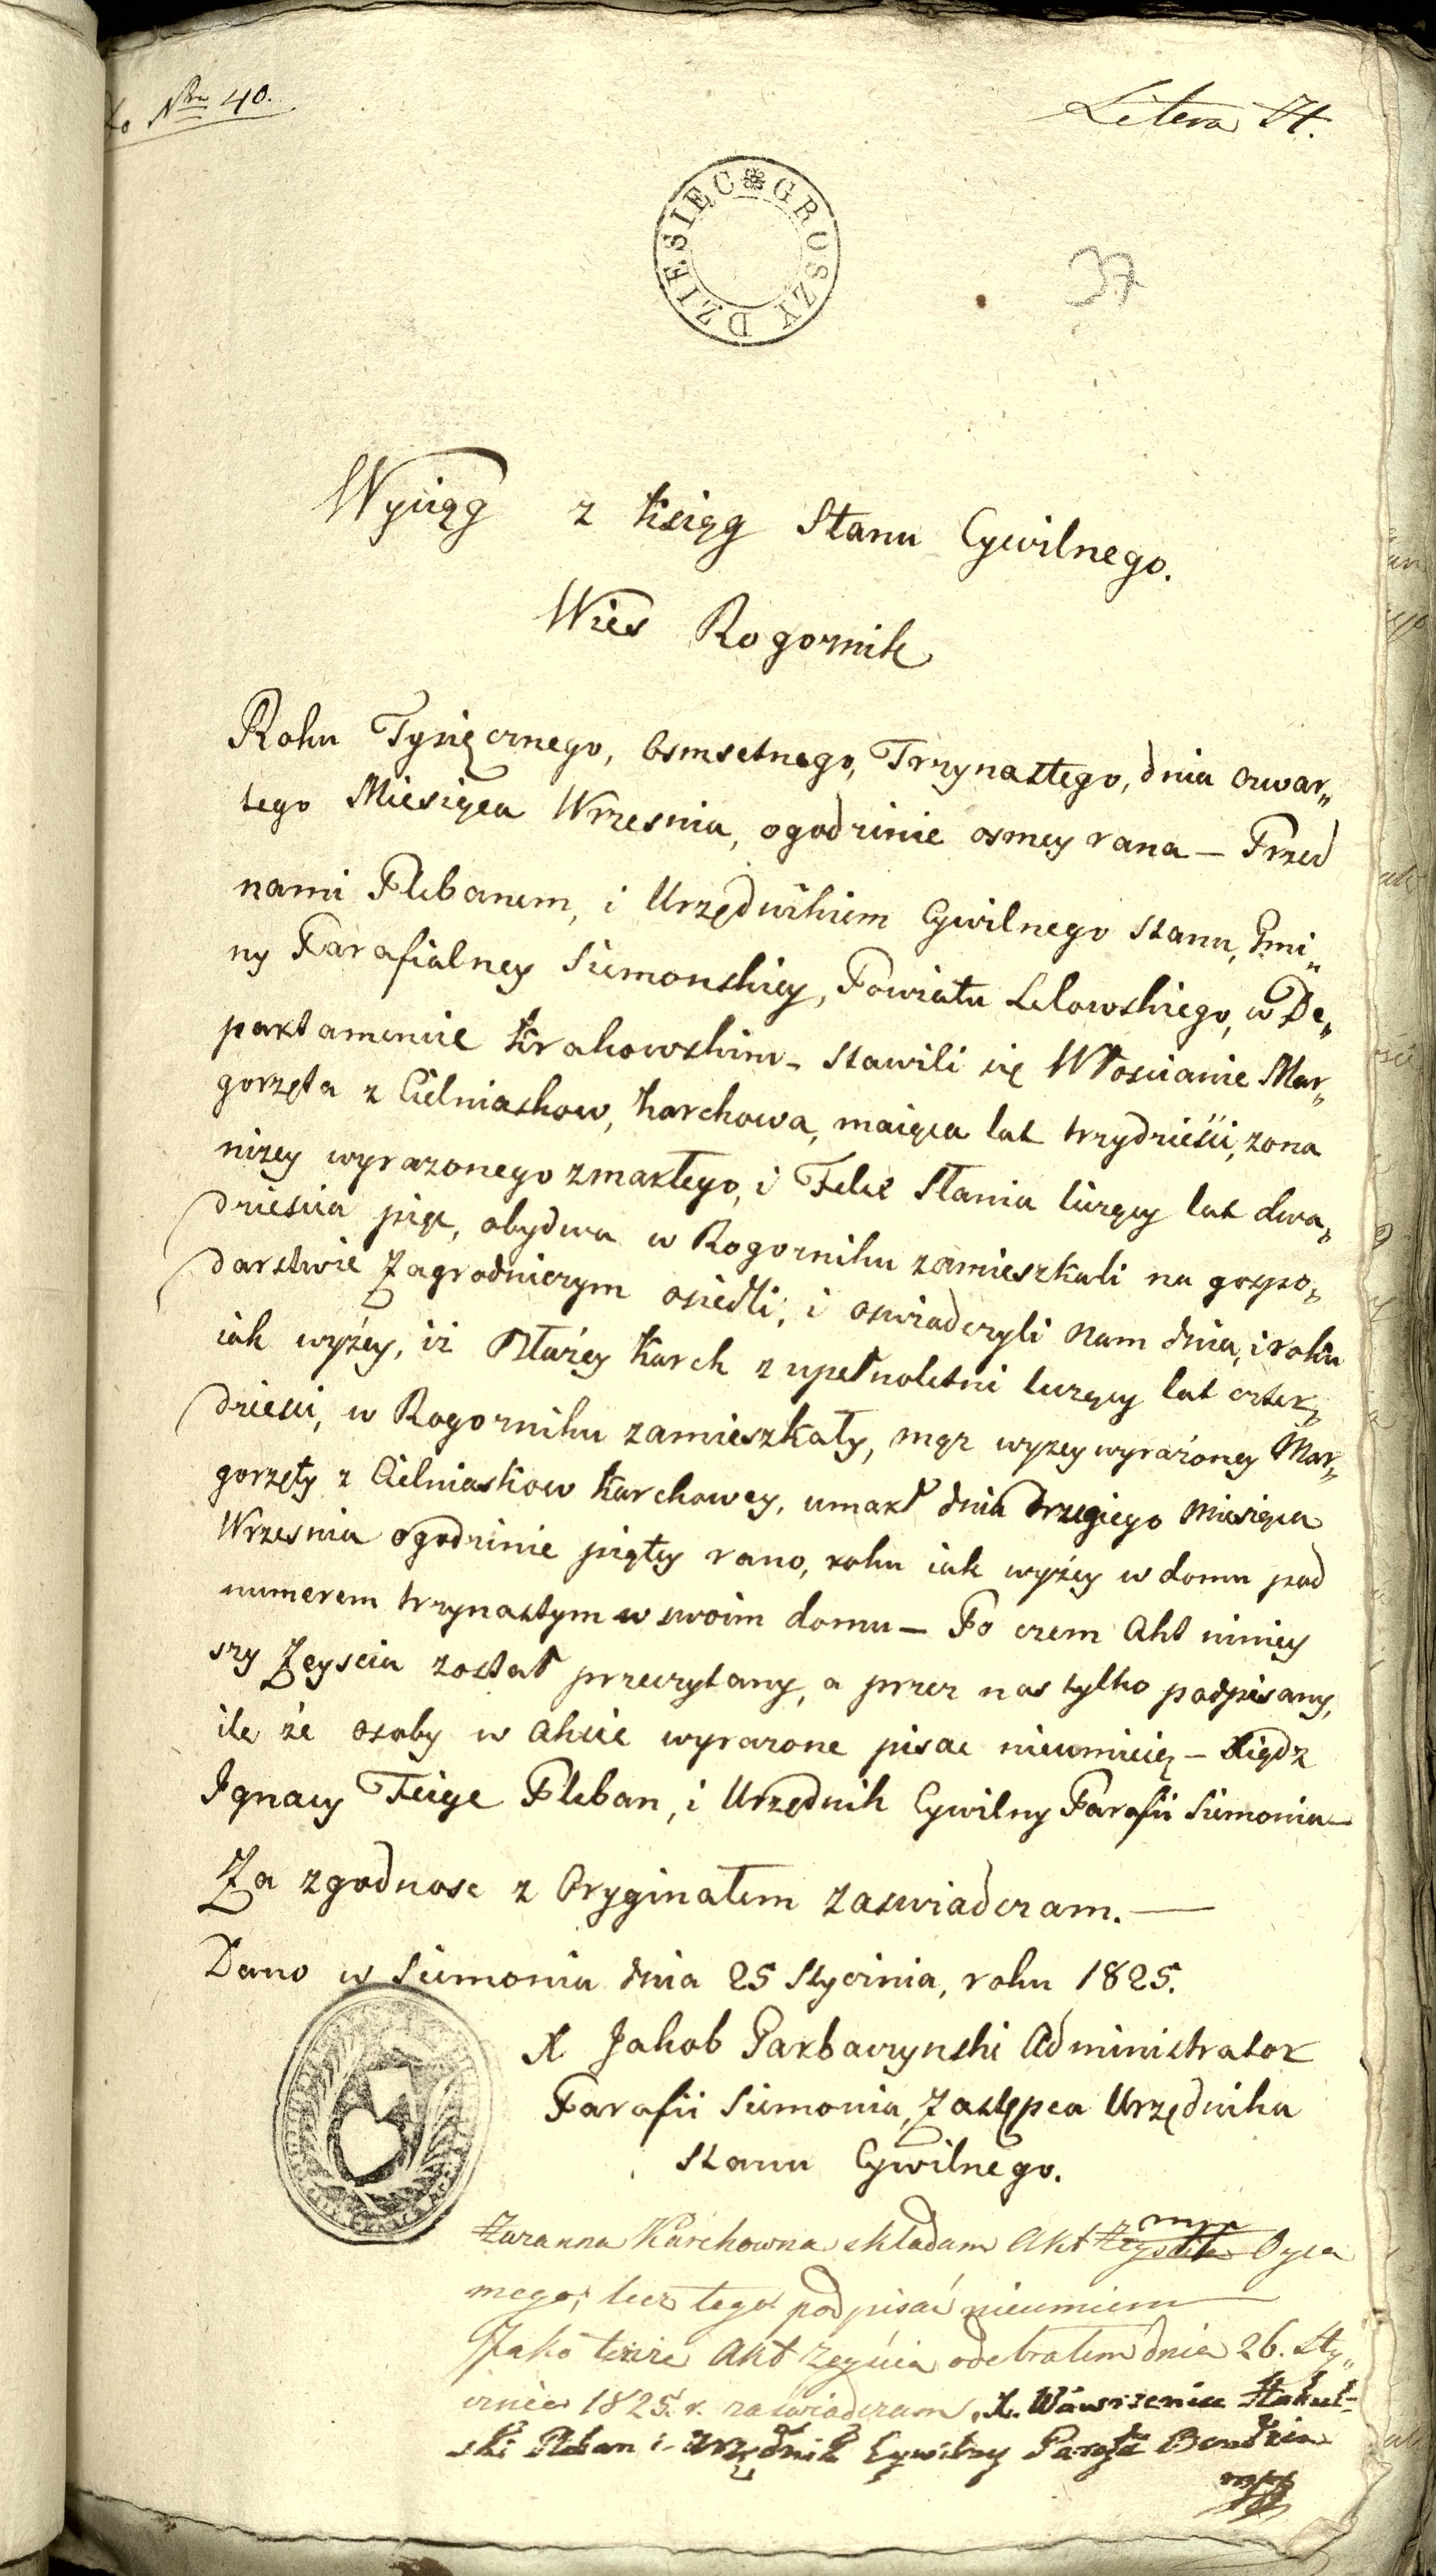 Nro 40.
Litera H.
DZIESIĘC GROSZY
37
Wyciąg z ksiąg Stanu Cywilnego.
Wies Rogornik
Roku Tysięcznego, Osmsetnego, Trzynastego, dnia czwar„
tego Miesiąca Wrzesnia, ogodzinie osmey rana — Przed
nami Plebanem, i Urzędnikiem Cywilnego stanu, Gmi„
ny Parafialney Siemonskiey, Powiatu Lelowskiego, w De„
partamencie Krakowskim – stawili się Włoscianie Mar„
gorzęta z Cielniaskow, Karchowa, maiąca lat trzydzieści, zona
niżey wyrazonego zmarłego, i Felix Stania liczący lat dwa„
dziescia pięc, obydwa w Rogorniku zamieszkali na gospo„
darstwie Zagrodniczym osiedli, i oswiadczyli Nam dnia, i roku
iak wyżey, iż Błażey Karch zupełnoletni liczący lat czter„
dziesci, w Rogorniku zamieszkały, mąz wyzey wyrażoney Mar„
gorzęty z Cielniaskow Karchowey, umarł dnia trzeciego Miesiąca
Wrzesnia ogodzinie piątey rano, roku iak wyżey w domu pod
numerem trzynastym w swoim domu — Po czem Akt niniey
szy Zeyscia został przeczytany, a przez nas tylko podpisany,
ile że osoby w Akcie wyrazone pisac nieumieią — Xiądz
Ignacy Feige Pleban, i Urzędnik Cywilny Parafii Siemonia —
Za zgodnosc z Oryginałem zaswiadczam. —
Dano w Siemoni dnia 25 Stycznia, roku 1825.
X Jakob Garbaczynski Administrator
Parafii Siemonia, Zastępca Urzędnika
stanu Cywilnego.
Zuzanna Karchowna składam Akt Zeyscia Oyca
mego, lecz tego podpisać nieumiem —
Jako tenże Akt Zeyścia odebrałem dnia 26. Sty„
cznia 1825. r. zaswiadczam, X. Wawrzeniec
ski Pleban i Urzędnik Cywilny Parafii Bendzin